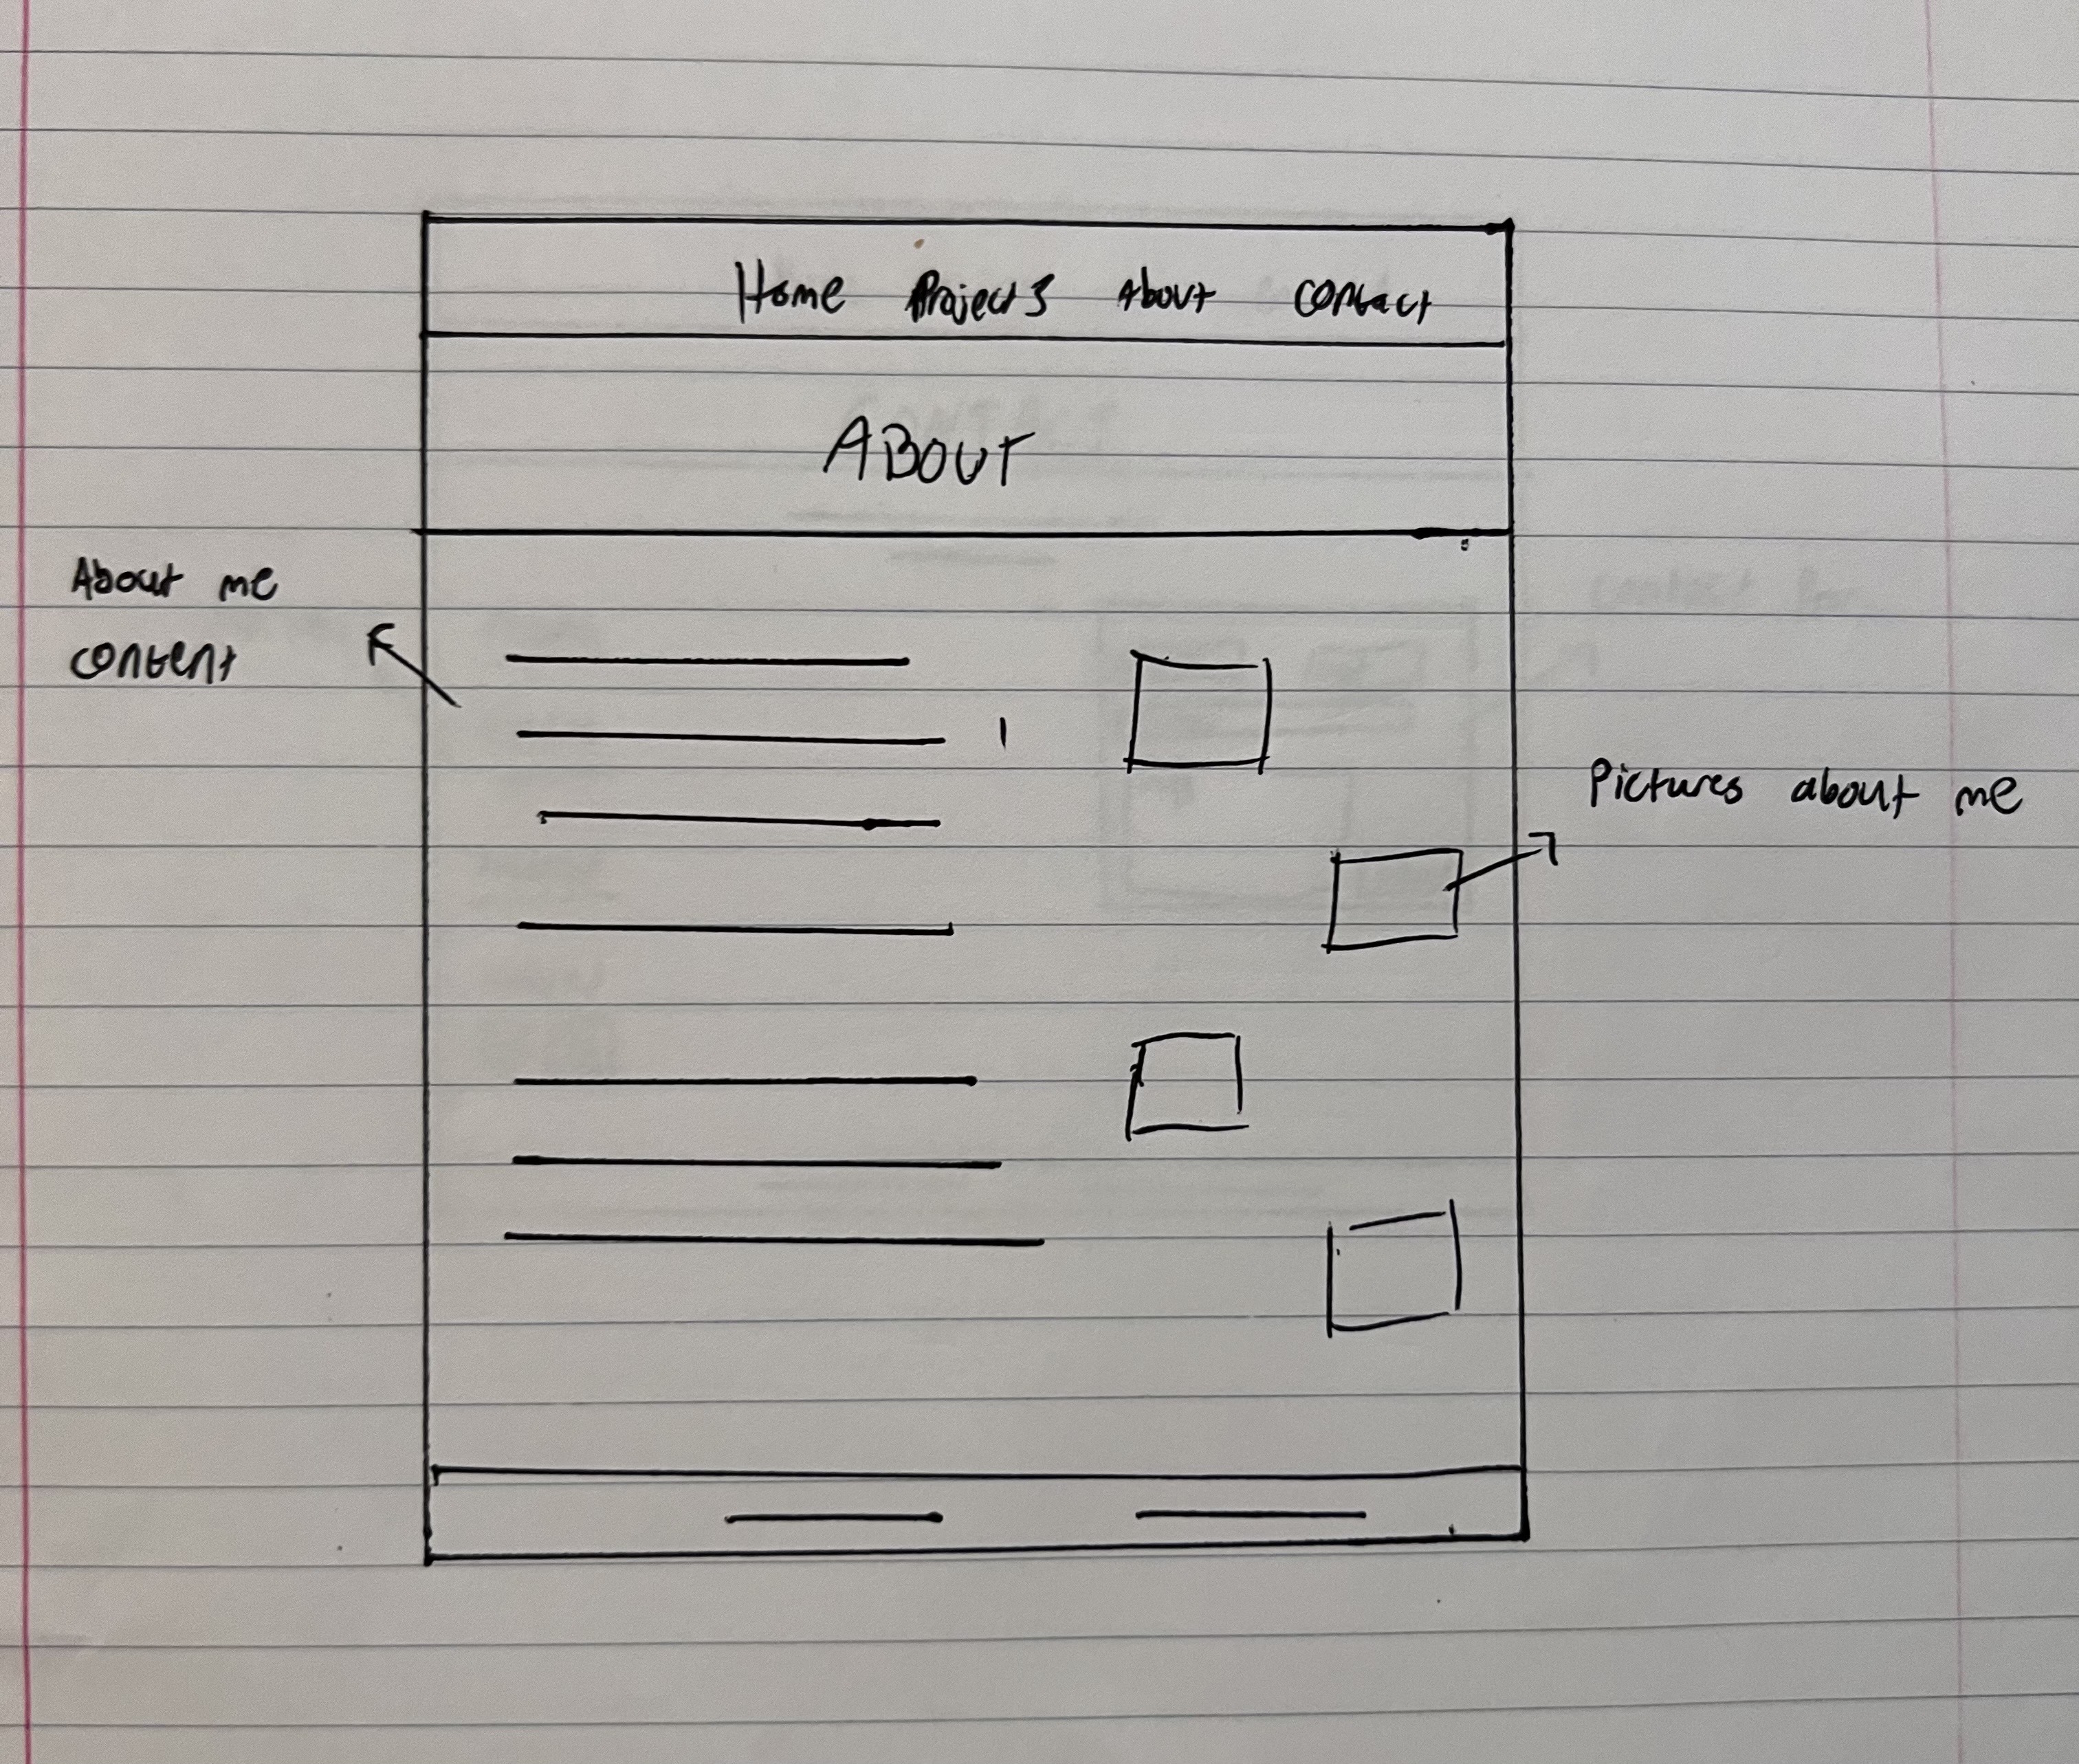 Home Projects About contact
ABOUT
About me
content
Pictures about me